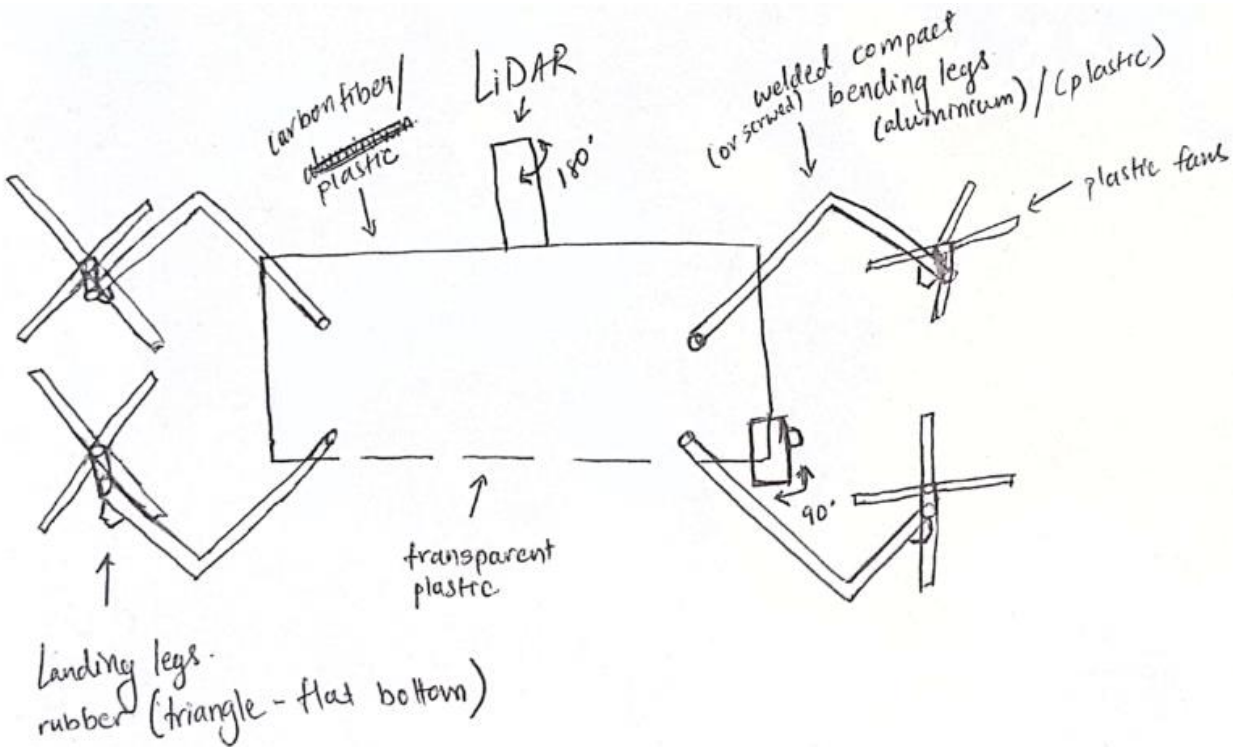 carbonfiber/
aluminium
plastic
LiDAR
180°
welded compact
(or screwed) bending legs
(aluminium)/(plastic)
plastic fans
90°
transparent
plastic
Landing legs.
rubber (triangle - flat bottom)